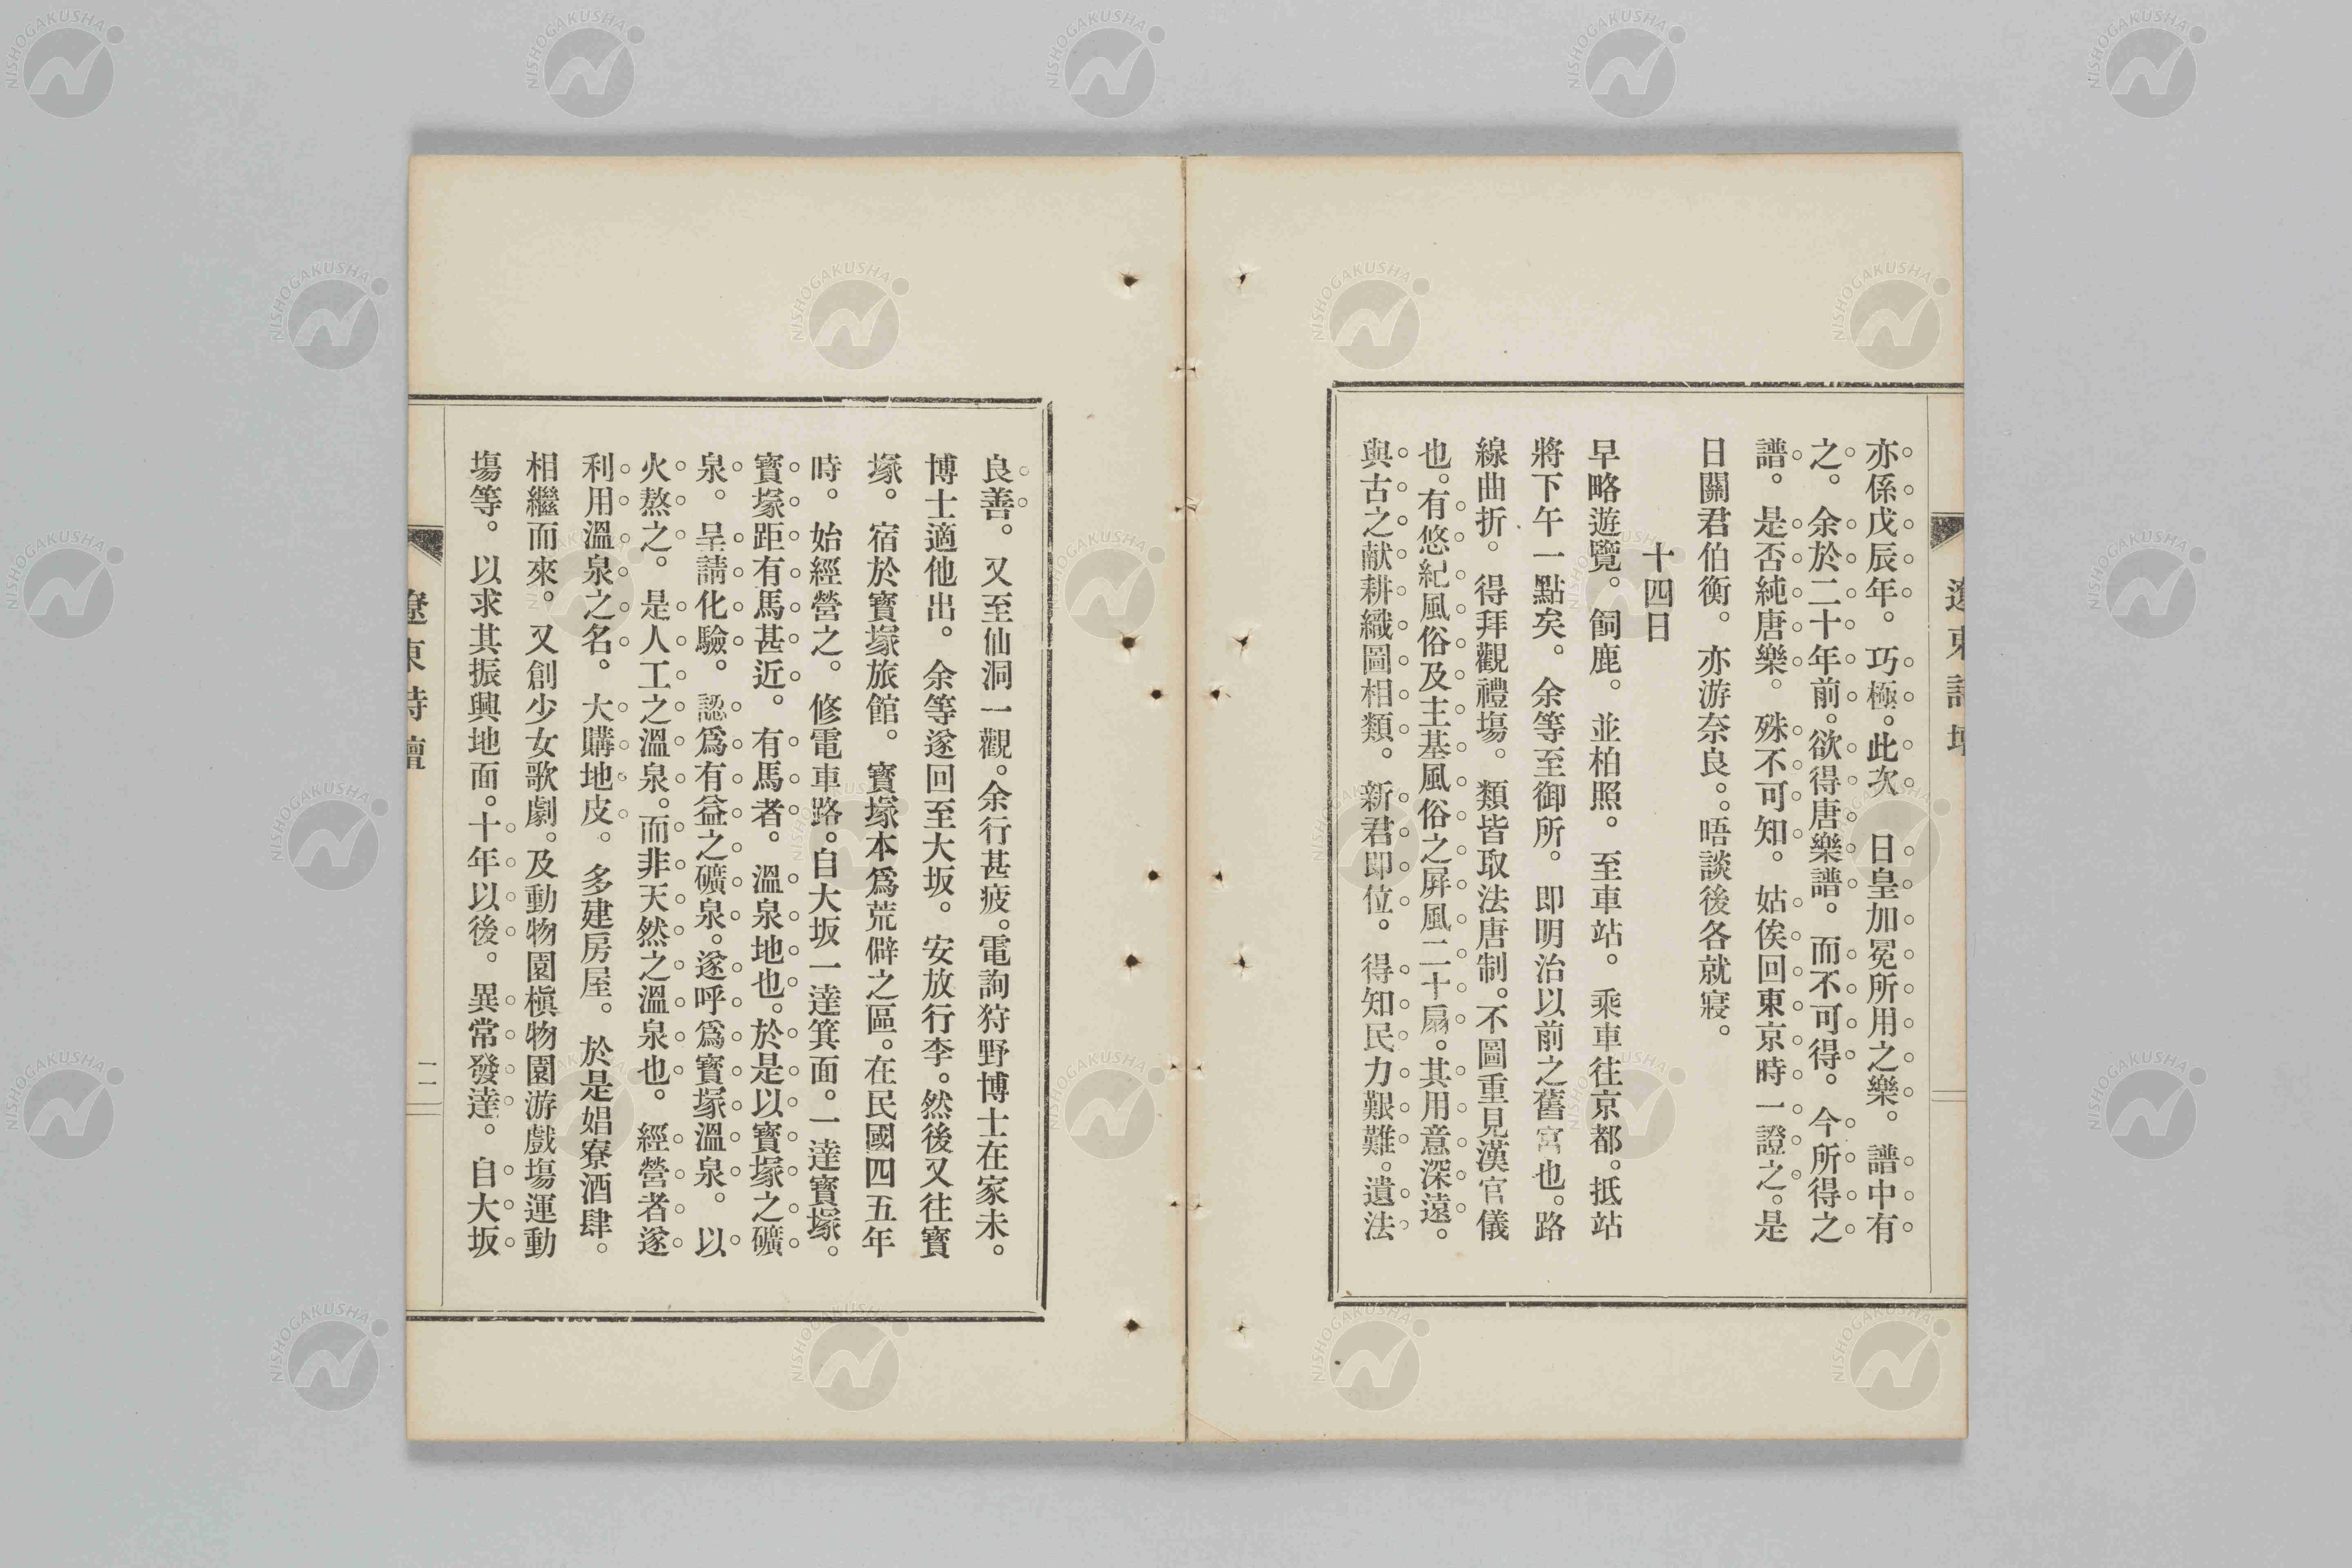 亦係戊辰年。巧極。此次　日皇加冕所用之樂。譜中有
之。余於二十年前。欲得唐樂譜。而不可得。今所得之
譜。是否純唐樂。殊不可知。姑俟回東京時一證之。是
日關君伯衡。亦游奈良。晤談後各就寢。
十四日
早略遊覽。飼鹿。並柏照。至車站。乘車往京都。抵站
將下午一點矣。余等至御所。即明治以前之舊宮也。路
線曲折。得拜觀禮塲。類皆取法唐制。不圖重見漢官儀
也。有悠紀風俗及主基風俗之屏風二十扇。其用意深遠。
與古之献耕織圖相類。新君即位。得知民力艱難。遺法
良善。又至仙洞一觀。余行甚疲。電詢狩野博士在家未。
博士適他出。余等遂回至大坂。安放行李。然後又往寶
塚。宿於寶塚旅館。寶塚本爲荒僻之區。在民國四五年
時。始經營之。修電車路。自大坂一達箕面。一達寶塚。
寶塚距有馬甚近。有馬者。溫泉地也。於是以寶塚之礦
泉。呈請化驗。認爲有益之礦泉。遂呼爲寶塚溫泉。以
火熬之。是人工之溫泉。而非天然之溫泉也。經營者遂
利用溫泉之名。大購地皮。多建房屋。於是娼寮酒肆。
相繼而來。又創少女歌劇。及動物園槇物園游戲塲運動
塲等。以求其振興地面。十年以後。異常發達。自大坂
遼東詩壇
一一
NISHOGAKUSHA